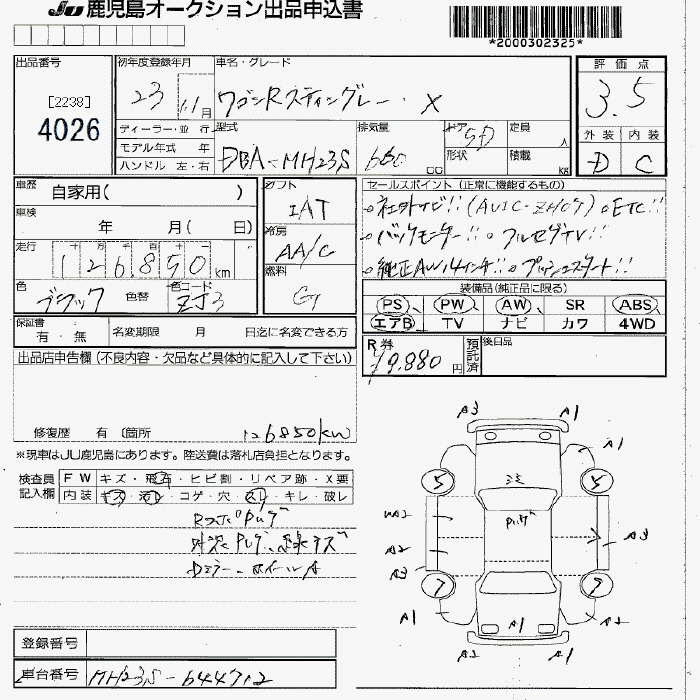 JU 鹿児島オークション出品申込書
*2000302325*
出品番号 初年度登録年月 車名・グレード 評価点
[2238] 4026 23 11月 ワゴンRスティングレー X 3.5
ディーラー・並行 型式 排気量 ドア 5D 定員 人 外装 内装
モデル年式 年 DBA-MH23S 660 cc 形状 積載 kg D C
ハンドル 左・右
車歴 自家用( ) シフト IAT セールスポイント (正常に機能するもの)
車検 年 月( 日) 冷房 AA/C 。社外ナビ!!(AVIC-ZH07) 。ETC!!
走行 十 万 千 百 十 一 126,850km 。バックモニター!! 。フルセグTV!!
燃料 G 。純正AW14インチ!! 。プッシュスタート!!
色 ブラック 色替 色コード ZJ3 装備品(純正品に限る)
PS PW AW SR ABS
エアB TV ナビ カワ 4WD
保証書 有・無 名変期限 月 日迄に名変できる方
R券 ¥9,880円 預託済 後日品
出品店申告欄(不良内容・欠品など具体的に記入して下さい)
修復歴 有 (箇所 126850km
※現車はJU鹿児島にあります。陸送費は落札店負担となります。
検査員記入欄 FW キズ・飛石・ヒビ割・リペア跡・X要
内装 キズ・汚レ・コゲ・穴・スレ・キレ・破レ
A3 A1
A1
5 5
A2 A3
A3
7 7
A1 A1 A1
A2 A1
登録番号
車台番号 MH23S-644712